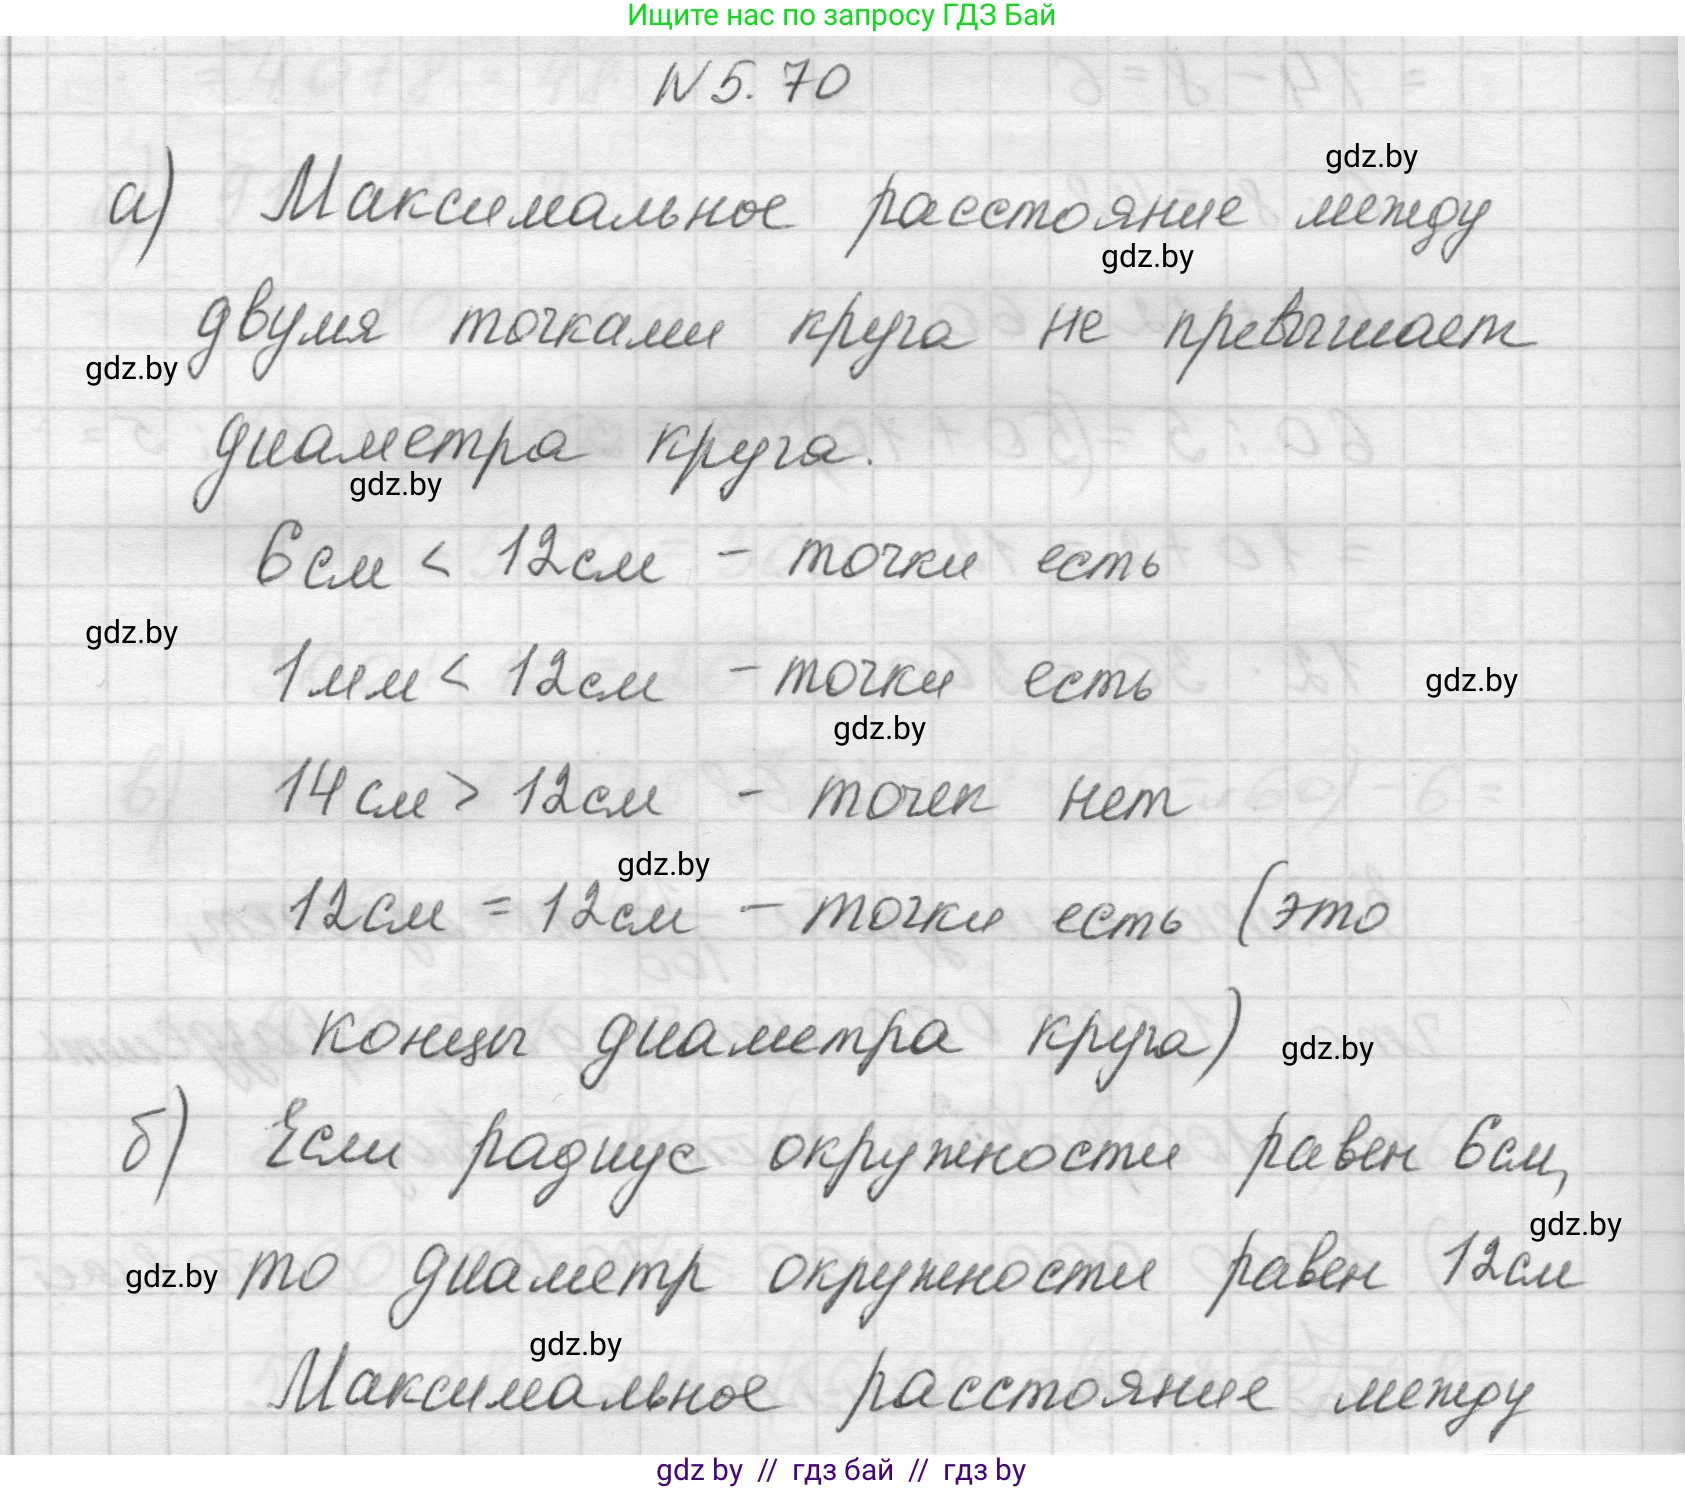 Ищите нас по запросу ГДЗ Бай
N 5. 70
gdz.by
а) Максимальное расстояние между
gdz.by
двумя точками круга не превышает
gdz.by
диаметра круга.
gdz.by
6 см < 12 см - точки есть
gdz.by
1 мм < 12 см - точки есть
gdz.by
gdz.by
14 см > 12 см - точек нет
gdz.by
12 см = 12 см - точки есть (это
концы диаметра круга)
gdz.by
б) Если радиус окружности равен 6 см,
gdz.by
то диаметр окружности равен 12 см
gdz.by
gdz.by
Максимальное расстояние между
gdz by // гдз бай // гдз by